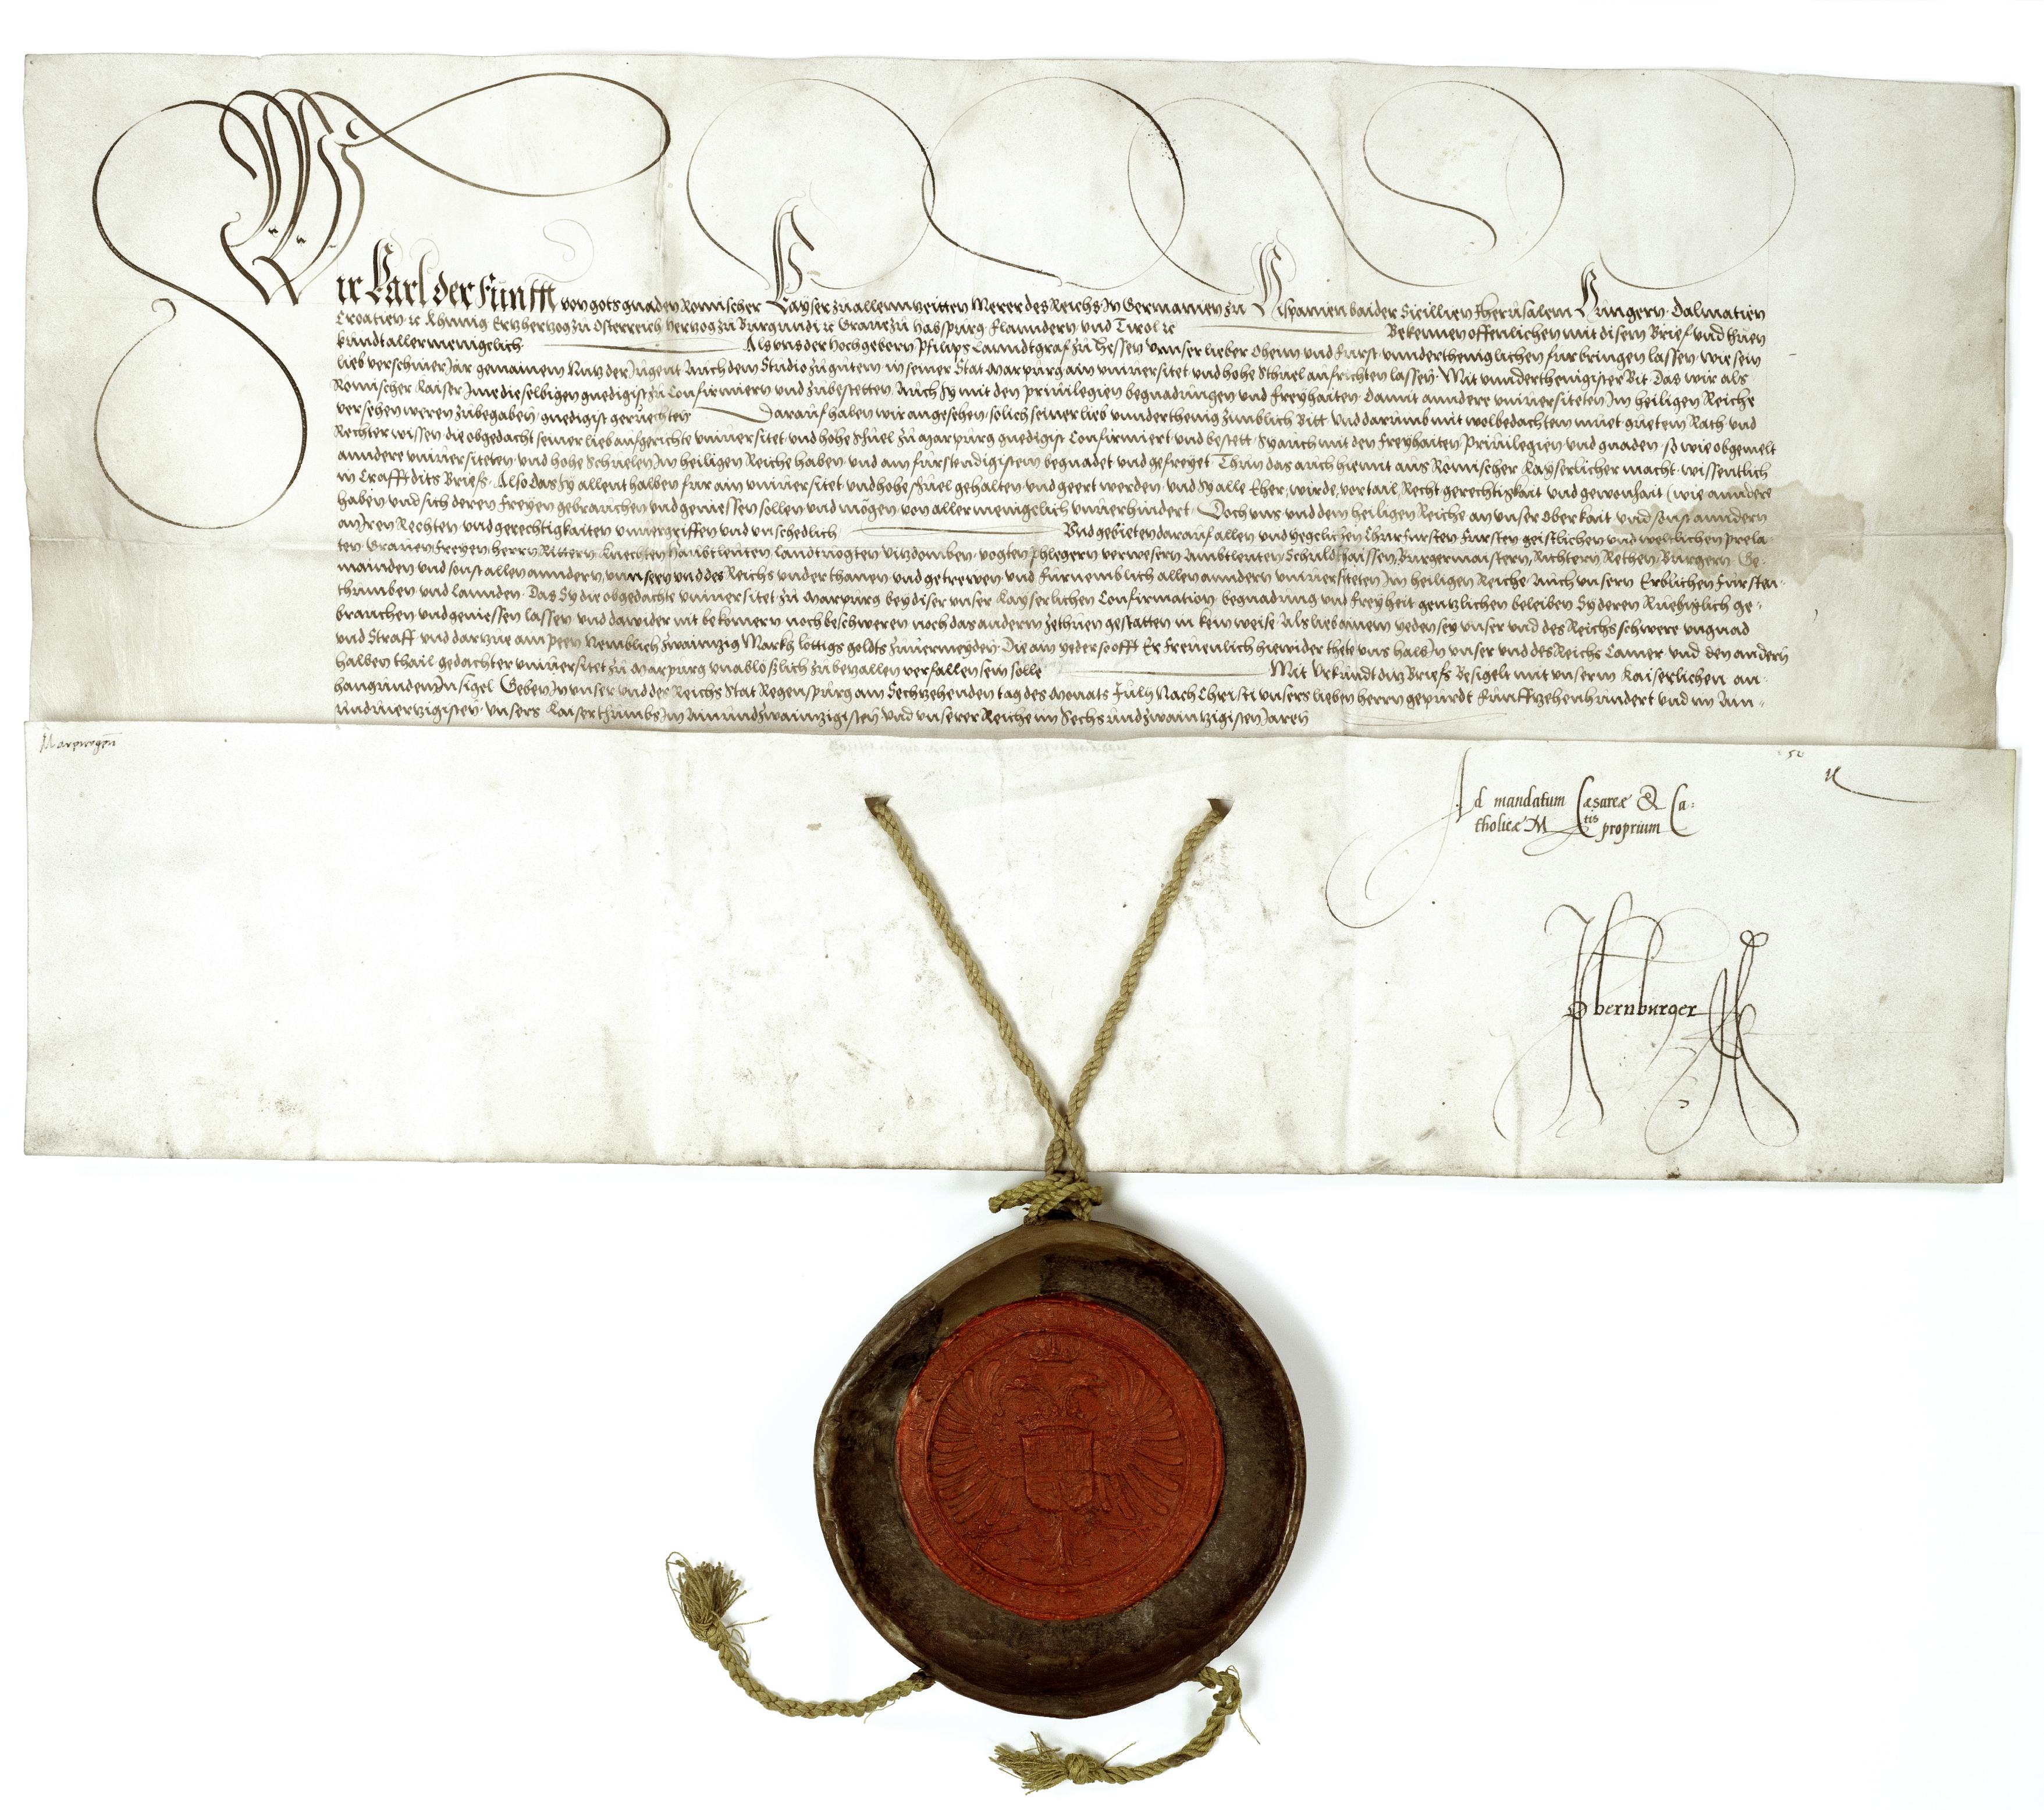 Wir Karl der Funfft von gots gnaden Romischer Kayser zu allenn zeitten Merer des Reichs In Germanien zu Hispanien baider Sicillien Jherusalem Hungern Dalmatien
Croatien ꝛc Khunig Ertzhertzog zu Osterreich Hertzog zu Burgundi ꝛc Graue zu Habspurg Flanndern und Tirol ꝛc Bekennen offenlichen mit disem Brief und thuen
kundt allermenigclich Als uns der Hochgeborn Philips Lanndtgraf zu Hessen unnser lieber Oheim und Furst unndertheniglichen furbringen lassen wie sein
lieb verschiner Jar gemainem Nutz der Jugent Auch dem Studio zu gutem in seiner Stat Marpurg ain universitet und hohe Schuel aufrichten lassen Mit unnderthenigister Bit Das wir als
Romischer Kaiser Jme dieselbigen gnedigist zu Confirmiern und zubestetten Auch Sy mit den privilegien begnadungen und freyhaiten Damit anndere universiteten Jm heiligen Reiche
versehen weren zubegaben gnedigist geruechten Darauf haben wir angesehen solich seiner lieb unnderthenig zimblich Bitt und darumb mit wolbedachten muet guetem Rath und
Rechter wissen die obgedacht seiner lieb aufgerichte universitet und hohe Schuel zu Marpurg gnedigist Confirmiert und bestett Sy auch mit den Freyhaiten Privilegien und gnaden so wie obgemelt
anndere universiteten und hohe Schuelen Jm heiligen Reiche haben und am furstendigisten begnadet und gefreyet Thun das auch hiemit aus Romischer Kayserlicher macht wissentlich
in Crafft dits Briefs Also das Sy allenthalben fur ain universitet und hohe schuel gehalten und geert werden und Sy alle Eher wirde vortail Recht gerechtigkait und gewonhait (wie anndere
haben und sich deren Freyen gebrauchen und geniessen sollen und mögen von allermenigclich unverhindert Doch uns und dem heiligen Reiche an unser Oberkait und sonst anndern
an Jren Rechten und gerechtigkaiten unvergriffen und unschedlich Und gebieten darauf allen und yegclichen Churfursten Fursten geistlichen und weltlichen prela
ten Grauen Freyen Herrn Rittern Knechten Haubtleuten Landtvogten Vitzdomben vogten phlegern verwesern Ambtleuten Schuldhaissen Burgermaistern Richtern Rethen Burgern Ge-
mainden und sonst allen anndern unnseren und des Reichs underthanen und getrewen und furnemblich allen anndern universiteten Jm heiligen Reiche Auch unsern Erblichen Fursten-
thumben und Lannden Das Sy die obgedachte universitet zu Marpurg bey diser unser Kayserlichen Confirmation begnadung und Freyheit gentzlichen beleiben Sy deren Ruehigclich ge-
brauchen und geniessen lassen und dawider nit bekomern noch beschweren noch das andern zethuen gestatten in kein weise Als lieb ainem yeden sey unser und des Reichs schwere ungnad
und Straff und dartzue ain peen Nemblich zwaintzig Markh löttigs goldts zuvermeyden Die ain yeder so offt Er Freuenlich hiewider thete uns halb Jn unser und des Reichs Camer und den andern
halben thail gedachter universitet zu Marpurg unablößlich zubezallen verfallen sein solle Mit Urkundt ditz Briefs Besigelt mit unserm Kaiserlichen an-
hangunden Jnsigel Geben Jn unser und des Reichs Stat Regenspurg am Sechzehenden tag des Monats July Nach Christi unsers lieben herrn gepurde Funfftzehenhundert und im Ain-
undviertzigisten unsers Kaiserthumbs Jm Ainundzwaintzigisten und unserer Reiche im Sechsundzwaintzigisten Jaren
Ad mandatum Cæsareæ & Ca-
tholicæ Mtis proprium
Obernburger